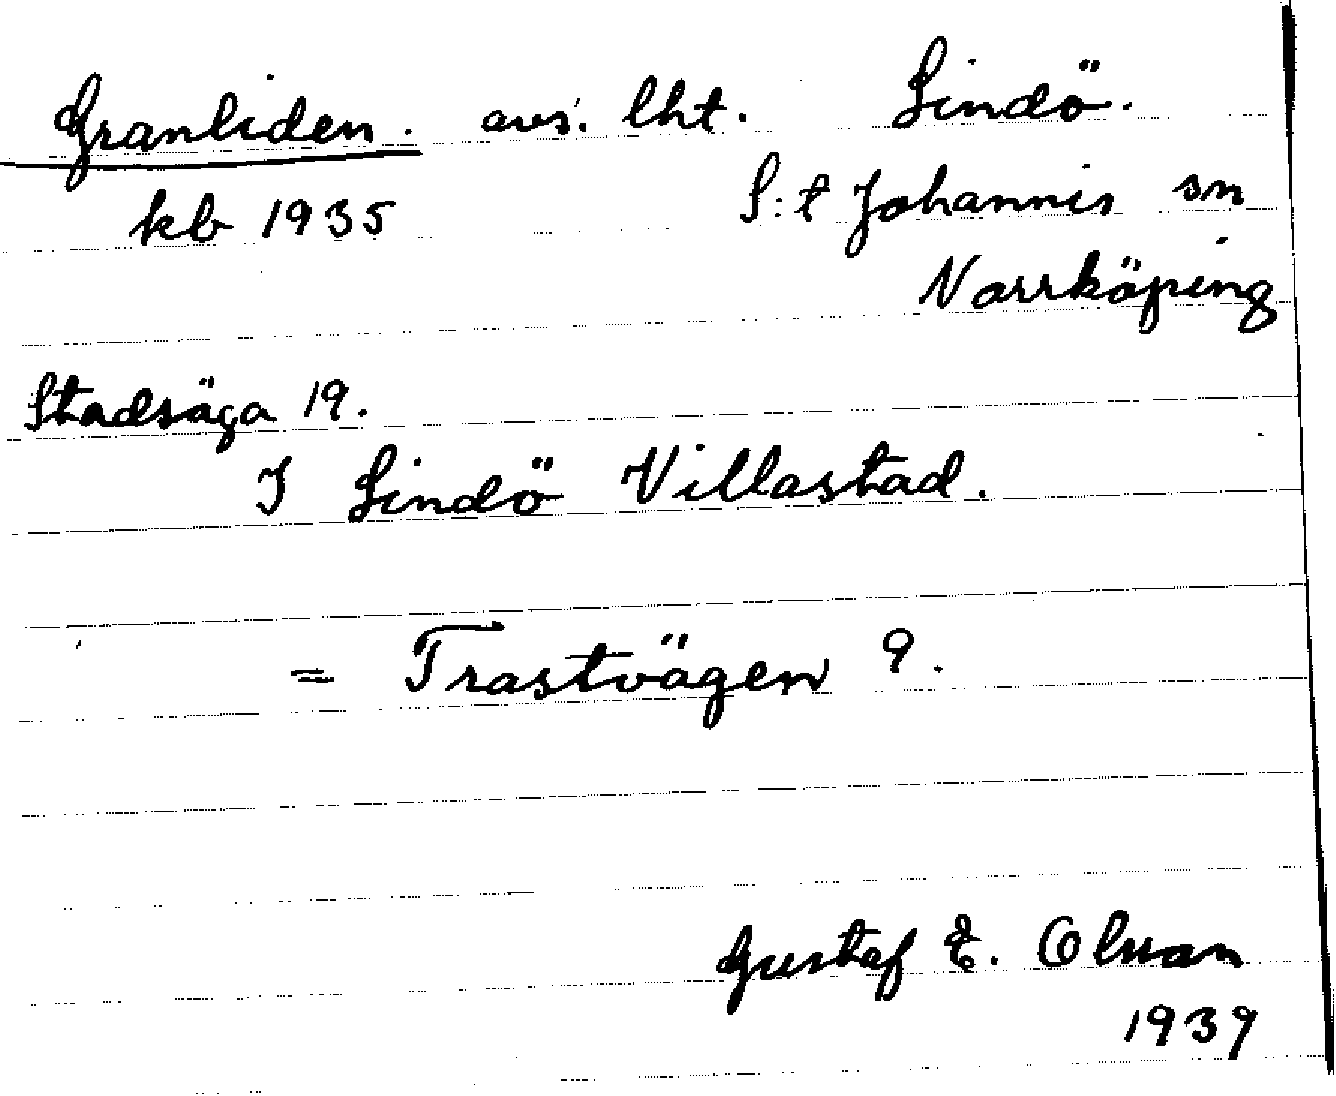 Granliden. avs. lht. Lindö.
kb 1935 S:t Johannis sn
Norrköping
Stadsäga 19.
I Lindö Villastad.
= Trastvägen 9.
Gustaf E. Olsson
1939